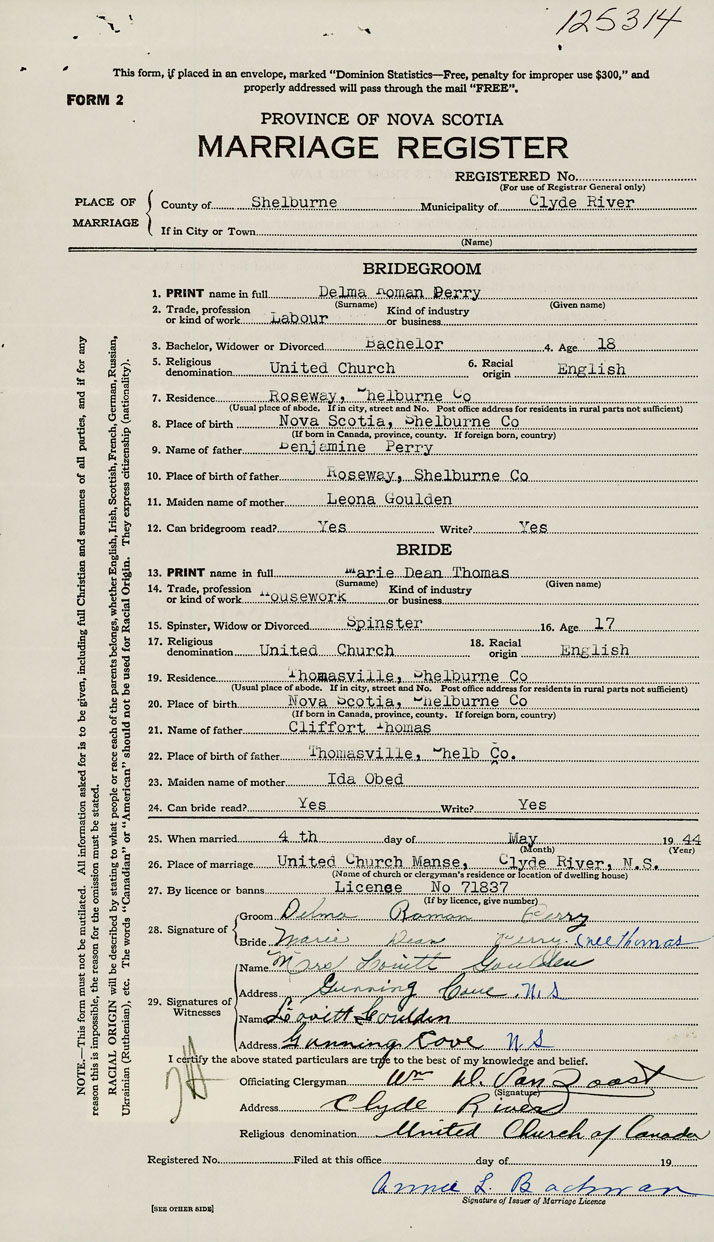 125314
This form, if placed in an envelope, marked "Dominion Statistics—Free, penalty for improper use $300," and
properly addressed will pass through the mail "FREE".
FORM 2
PROVINCE OF NOVA SCOTIA
MARRIAGE REGISTER
REGISTERED No.
(For use of Registrar General only)
PLACE OF MARRIAGE
County of Shelburne Municipality of Clyde River
If in City or Town
(Name)
BRIDEGROOM
1. PRINT name in full Delma Roman Perry
(Surname) (Given name)
2. Trade, profession or kind of work Labour Kind of industry or business
3. Bachelor, Widower or Divorced Bachelor 4. Age 18
5. Religious denomination United Church 6. Racial origin English
7. Residence Roseway, Shelburne Co
(Usual place of abode. If in city, street and No. Post office address for residents in rural parts not sufficient)
8. Place of birth Nova Scotia, Shelburne Co
(If born in Canada, province, county. If foreign born, country)
9. Name of father Benjamine Perry
10. Place of birth of father Roseway, Shelburne Co
11. Maiden name of mother Leona Goulden
12. Can bridegroom read? Yes Write? Yes
BRIDE
13. PRINT name in full Marie Dean Thomas
(Surname) (Given name)
14. Trade, profession or kind of work Housework Kind of industry or business
15. Spinster, Widow or Divorced Spinster 16. Age 17
17. Religious denomination United Church 18. Racial origin English
19. Residence Thomasville, Shelburne Co
(Usual place of abode. If in city, street and No. Post office address for residents in rural parts not sufficient)
20. Place of birth Nova Scotia, Shelburne Co
(If born in Canada, province, county. If foreign born, country)
21. Name of father Cliffort Thomas
22. Place of birth of father Thomasville, Shelb Co.
23. Maiden name of mother Ida Obed
24. Can bride read? Yes Write? Yes
25. When married 4 th day of May 19 44
(Month) (Year)
26. Place of marriage United Church Manse, Clyde River, N.S.
(Name of church or clergyman's residence or location of dwelling house)
27. By licence or banns Licence No 71837
(If by licence, give number)
28. Signature of
Groom Delma Roman Perry
Bride Marie Dean Perry. (nee Thomas
29. Signatures of Witnesses
Name Mrs Lovitt Goulden
Address Gunning Cove N.S
Name Leavitt Goulden
Address Gunning Cove N S
I certify the above stated particulars are true to the best of my knowledge and belief.
Officiating Clergyman Wm D. Van Zoost
(Signature)
Address Clyde River
Religious denomination United Church of Canada
Registered No. Filed at this office day of 19
Annie L. Bachman
Signature of Issuer of Marriage Licence
[SEE OTHER SIDE]
NOTE.—This form must not be mutilated. All information asked for is to be given, including full Christian and surnames of all parties, and if for any
reason this is impossible, the reason for the omission must be stated.
RACIAL ORIGIN will be described by stating to what people or race each of the parents belongs, whether English, Irish, Scottish, French, German, Russian,
Ukrainian (Ruthenian), etc. The words "Canadian" or "American" should not be used for Racial Origin. They express citizenship (nationality).